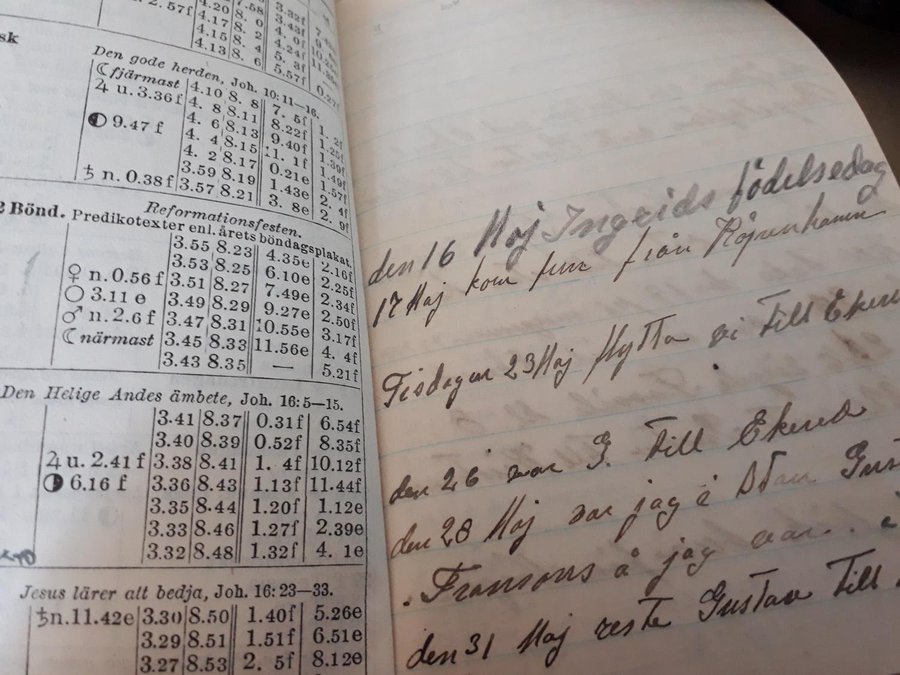 2.57f
4.20 8. 0
4.17 8. 2
4.15 8. 4
4.13 8. 6
sk
Den gode herden, Joh. 10: 11—16.
☾ fjärmast 4.10 8. 8 7. 5f
♃ u. 3.36 f 4. 8 8.11 8.22f
4. 6 8.13 9.40f
◐ 9.47 f 4. 4 8.15 11. 1f
4. 2 8.17 0.21e
3.59 8.19 1.43e
♄ n. 0.38 f 3.57 8.21 3. 8e
2 Bönd. Reformationsfesten.
Predikotexter enl. årets böndagsplakat.
3.55 8.23 4.35e 2.16f
3.53 8.25 6.10e 2.25f
♀ n. 0.56 f 3.51 8.27 7.49e 2.34f
○ 3.11 e 3.49 8.29 9.27e 2.50f
♂ n. 2.6 f 3.47 8.31 10.55e 3.17f
☾ närmast 3.45 8.33 11.56e 4. 4f
3.43 8.35 — 5.21f
Den Helige Andes ämbete, Joh. 16: 5—15.
3.41 8.37 0.31f 6.54f
3.40 8.39 0.52f 8.35f
♃ u. 2.41 f 3.38 8.41 1. 4f 10.12f
◑ 6.16 f 3.36 8.43 1.13f 11.44f
3.35 8.44 1.20f 1.12e
3.33 8.46 1.27f 2.39e
3.32 8.48 1.32f 4. 1e
Jesus lärer att bedja, Joh. 16: 23—33.
♄ n. 11.42 e 3.30 8.50 1.40f 5.26e
3.29 8.51 1.51f 6.51e
3.27 8.53 2. 5f 8.12e
den 16 Maj Ingrids födelsedag
17 Maj kom fru från Köpenhamn
Tisdagen 23 Maj flytta vi till Ekerud
den 26 var G. till Ekerud
den 28 Maj var jag å Stan Gus
Fransons å jag var
den 31 Maj reste Gustav till